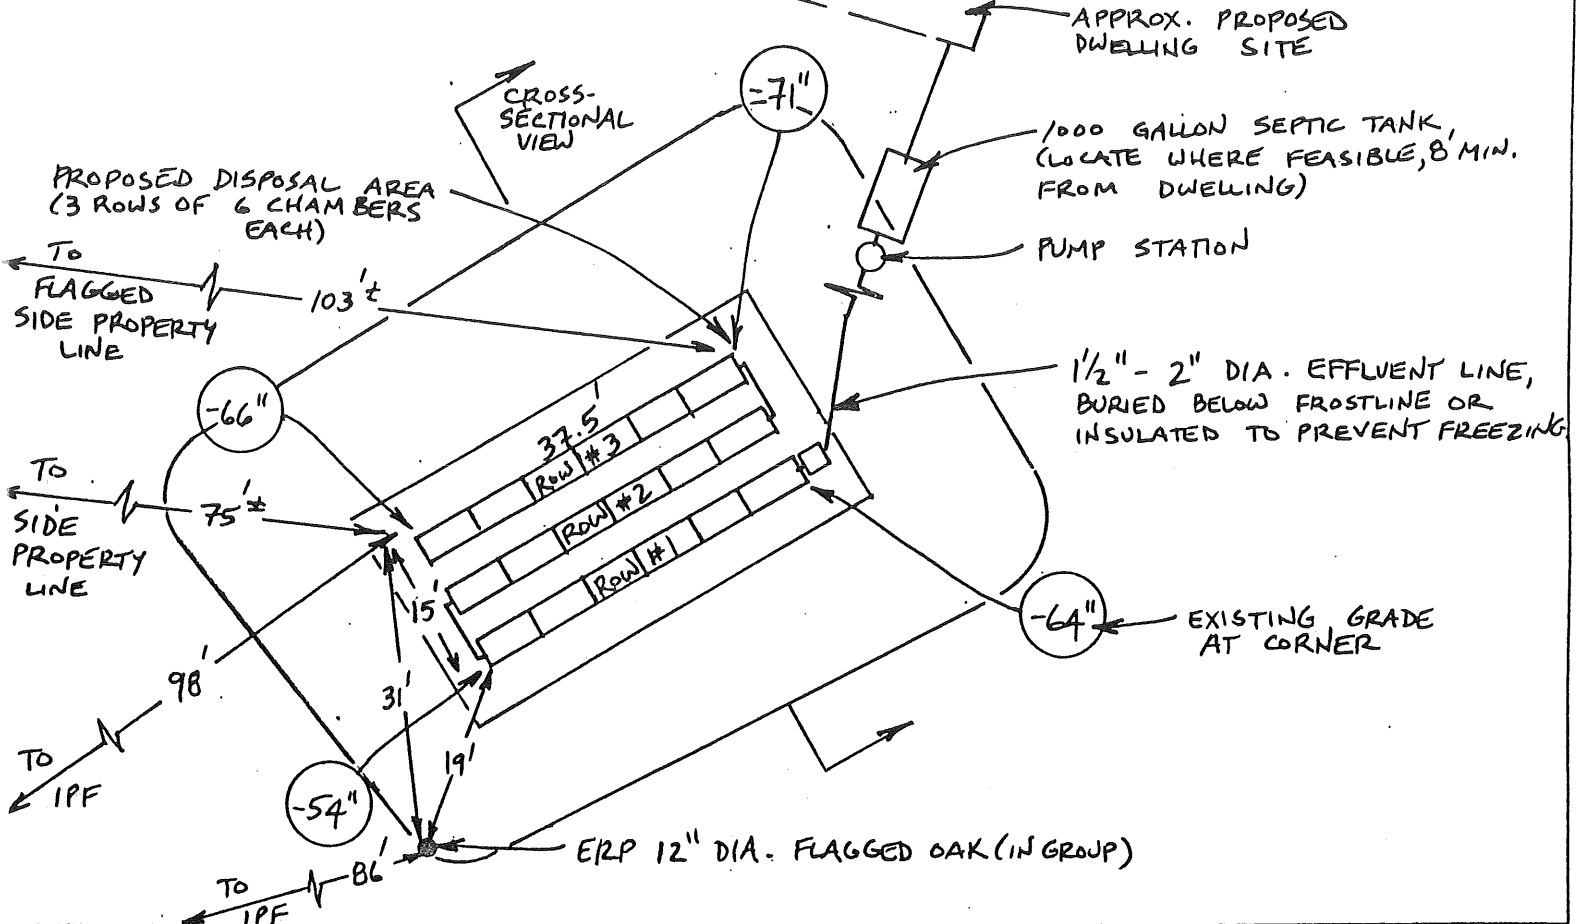 APPROX. PROPOSED
DWELLING SITE
-71"
CROSS-
SECTIONAL
VIEW
1000 GALLON SEPTIC TANK,
(LOCATE WHERE FEASIBLE, 8' MIN.
FROM DWELLING)
PROPOSED DISPOSAL AREA
(3 ROWS OF 6 CHAMBERS
EACH)
PUMP STATION
TO
FLAGGED
SIDE PROPERTY
LINE
103'±
1½" - 2" DIA. EFFLUENT LINE,
BURIED BELOW FROSTLINE OR
INSULATED TO PREVENT FREEZING
-66"
37.5'
ROW #3
ROW #2
ROW #1
TO
SIDE
PROPERTY
LINE
75'±
15'
-64"
EXISTING GRADE
AT CORNER
98'
TO
IPF
31'
19'
-54"
ERP 12" DIA. FLAGGED OAK (IN GROUP)
86'
TO
IPF